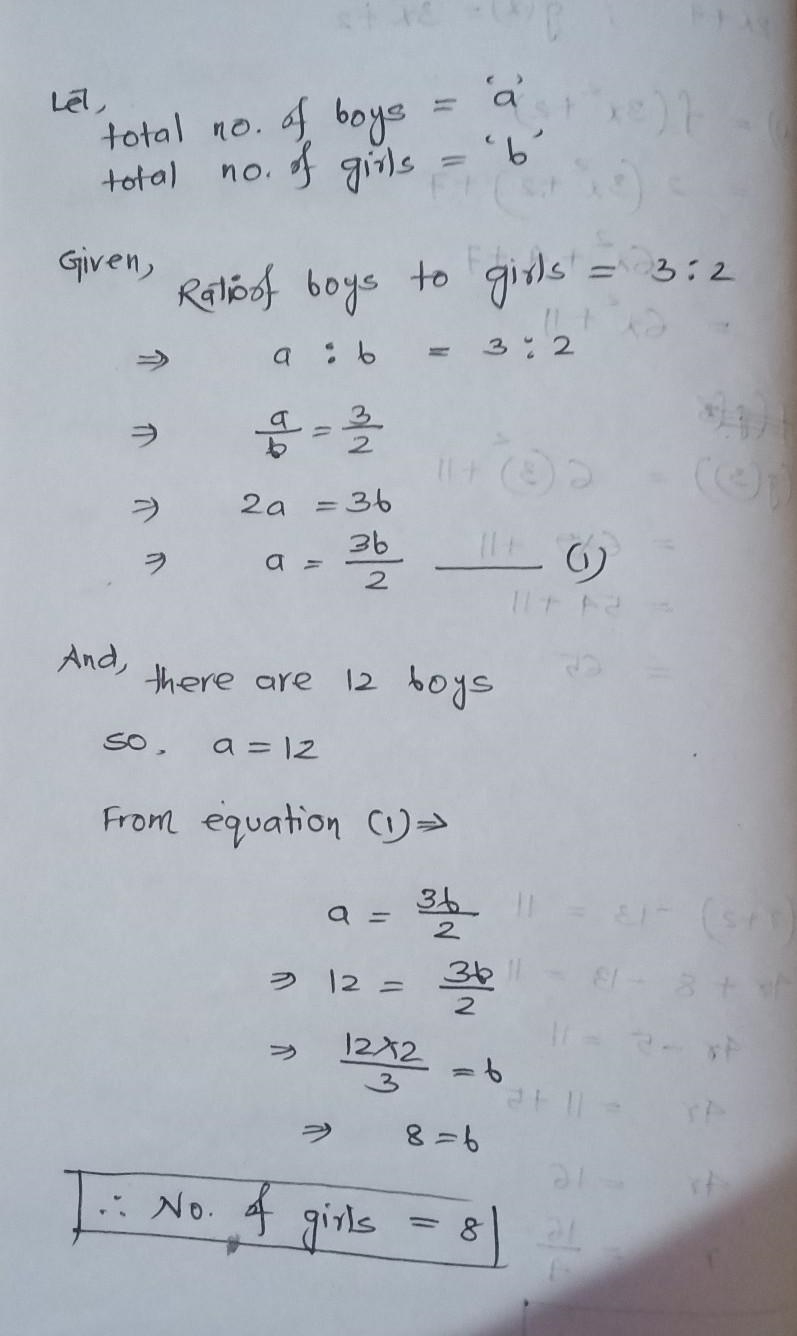 Let,
total no. of boys = 'a'
total no. of girls = 'b'
Given,
Ratio of boys to girls = 3 : 2
⇒ a : b = 3 : 2
⇒ a/b = 3/2
⇒ 2a = 3b
⇒ a = 3b/2 ——— (1)
And,
there are 12 boys
so, a = 12
From equation (1) ⇒
a = 3b/2
⇒ 12 = 3b/2
⇒ 12×2/3 = b
⇒ 8 = b
∴ No. of girls = 8